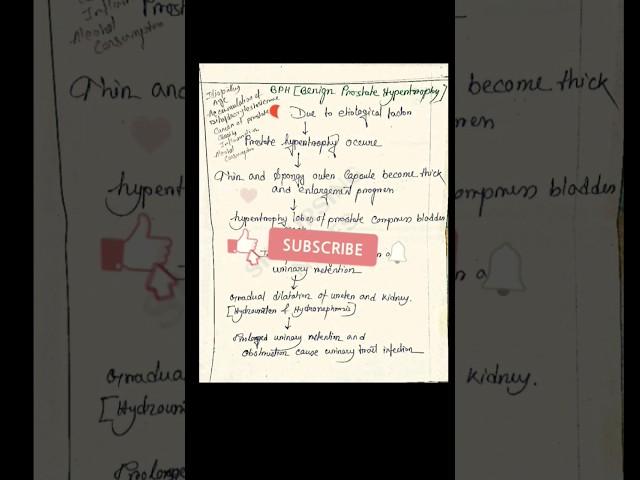 BPH [Benign Prostate Hypertrophy]
Idiopathy
Age
Accumulation of
Dihydroxytestosterone
Cancer of prostate
Obesity
Inflammation
Alcohol
Consumption
Due to etiological factor
Prostate hypertrophy occure
Thin and spongy outer Capsule become thick
and enlargement progress
hypertrophy lobes of prostate compress bladder
SUBSCRIBE
urinary retention
Gradual dilatation of ureter and kidney.
[Hydroureter & Hydronephrosis]
Prolonged urinary retention and
obstruction cause urinary tract infection